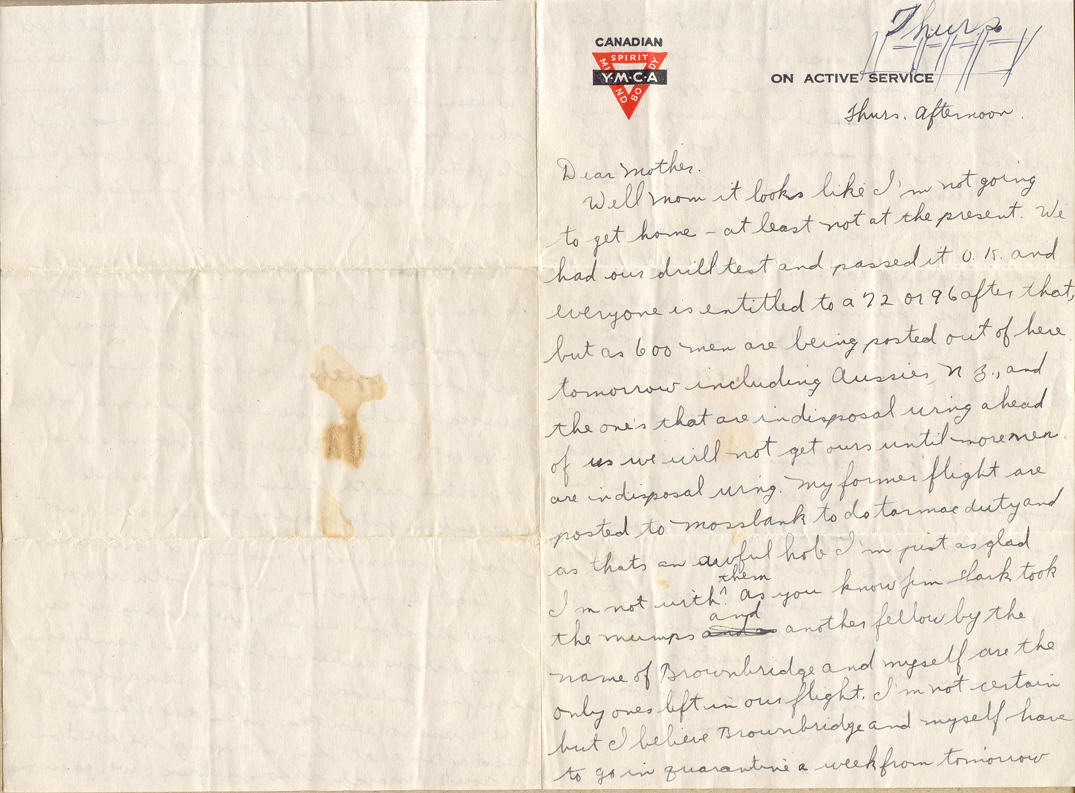 Thurs
CANADIAN
SPIRIT
MIND
Y·M·C·A
BODY
ON ACTIVE SERVICE
Thurs. Afternoon.
Dear Mother.
Well mom it looks like I'm not going
to get home – at least not at the present. We
had our drill test and passed it O.K. and
everyone is entitled to a 72 or 96 after that,
but as 600 men are being posted out of here
tomorrow including Aussies, N.Z., and
the one's that are in disposal wing ahead
of us we will not get ours until more men
are in disposal wing. My former flight are
posted to Mossbank to do tarmac duty and
as thats an awful hob I'm just as glad
them
I'm not with ^. As you know Jim Clark took
and
the mumps another fellow by the
name of Brownbridge and myself are the
only ones left in our flight. I'm not certain
but I believe Brownbridge and myself have
to go in quarantine a week from tomorrow